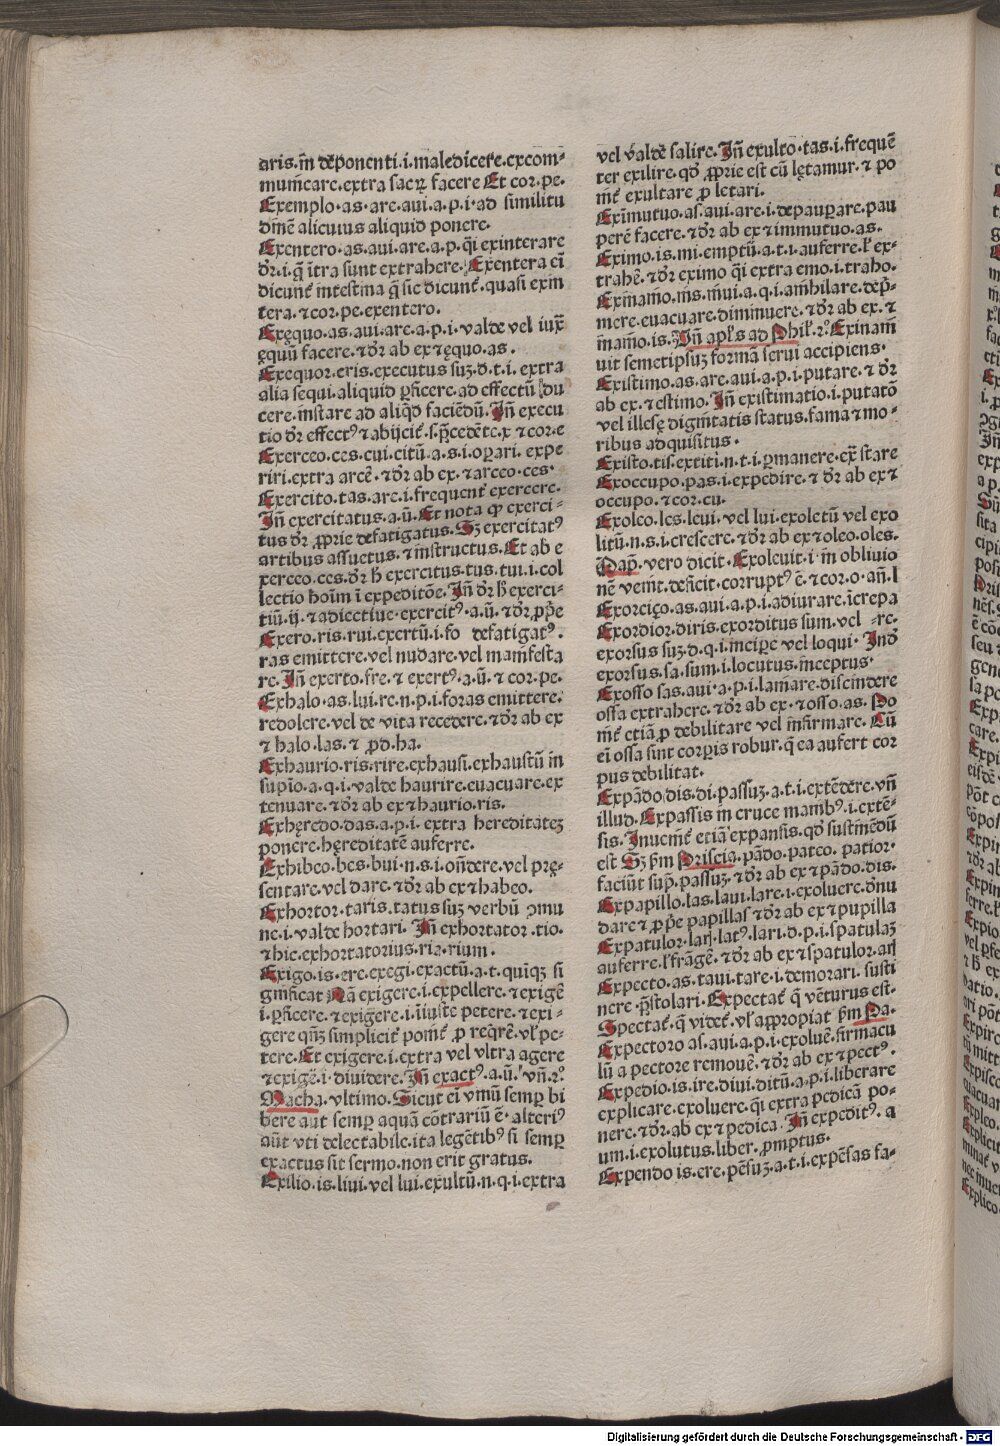 aris.in dẽponenti.i.maledicere.excom-
municare.extra sacrꝝ facere Et cor.pe.
Exemplo.as.are.aui.a.p.i.ad similitu
dinẽ alicuius aliquid ponere.
Exentero.as.aui.are.a.p. q̃i exinterare
dr̃.i.q̃ ĩtra sunt extrahere. Exentera eĩ
dicunt̃ intestina q̃ sic dicunt̃.quasi exin
tera.⁊ cor.pe.exentero.
Exęquo.as.aui.are.a.p.i.valde vel iux̃
ęquũ facere.⁊dr̃ ab ex⁊ęquo.as.
Exequor.eris.executus suꝫ.d.t.i.extra
alia sequi.aliquid ꝑficere.ad effectũ ꝓdu
cere.instare ad aliqd̃ faciẽdũ.Iñ execu
tio dr̃ effectꝰ⁊abijcit̃.s.p̃cedẽte.x ⁊cor.e
Exerceo.ces.cui.citũ.a.s.i.oꝑari.expe
riri.extra arcẽ.⁊dr̃ ab ex.⁊arceo.ces.
Exercito.tas.are.i.frequent̃ exercere.
Iñ exercitatus.a.ũ.Et nota ꝙ exerci-
tus dr̃ ꝓprie defatigatus.Sꝫ exercitatꝰ
artibus assuetus.⁊instructus.Et ab e
xerceo.ces.dr̃ h̃ exercitus.tus.tui.i.col
lectio hoĩm ĩ expeditõe.Iñ dr̃ h̃ exerci-
tiũ.ij.⁊adiectiue exercitꝰ.a.ũ.⁊dr̃.ꝓp̃e
Exero.ris.rui.exertũ.i.fo defatigatꝰ.
ras emittere.vel nudare.vel manifesta
re.Iñ exerto.tre.⁊ exertꝰ.a.ũ.⁊ cor.pe.
Exhalo.as.lui.re.n.p.i.foras emittere.
redolere.vel de vita recedere.⁊dr̃ ab ex
⁊ halo.las.⁊ ꝓd.ha.
Exhaurio.ris.rire.exhausi.exhaustũ in
supĩo.a.q.i.valde haurire.euacuare.ex
tenuare.⁊dr̃ ab ex⁊haurio.ris.
Exhęredo.das.a.p.i. extra hereditateꝫ
ponere.hęreditatẽ auferre.
Exhibeo.bes.bui.n.s.i.oñdere.vel pręe-
sentare.vel dare.⁊dr̃ ab ex⁊habeo.
Exhortor.taris.tatus suꝫ verbũ ꝯmu
ne.i.valde hortari.Iñ exhortator.tio.
⁊hic.exhortatorius.ria.rium.
Exigo.is.ere.exegi.exactũ.a.t.quĩqꝫ si
gnificat Nã exigere.i.expellere.⁊exigẽ
i.ꝑficere.⁊exigere.i.iniuste petere.⁊exi-
gere qñꝫ simplicit̃ ponit̃ ꝓ reqr̃e.vl̃ pe-
tere.Et exigere.i.extra vel vltra agere
⁊exigẽ.i.diuidere.Iñ exactꝰ.a.ũ.vñ.2°.
Macha.vltimo.Sicut eĩ vinũ semꝑ bi
bere aut semꝑ aquã cõtrariũ ẽ.alteriꝰ
aũt vti delectabile.ita legẽtibꝰ si semꝑ
exactus sit sermo.non erit gratus.
Exilio.is.liui.vel lui.exultũ.n.q.i.extra
vel valdẽ salire.Iñ exulto.tas.i.frequẽ
ter exilire.qd̃ ꝓprie est cũ lętamur.⁊ po
nit̃ exultare ꝓ letari.
Exĩmutuo.as.aui.are.i.depauꝑare.pau
perẽ facere.⁊dr̃ ab ex⁊immutuo.as.
Eximo.is.mi.emptũ.a.t.i.auferre.l̃ ex-
trahẽ.⁊dr̃ eximo q̃i extra emo.i.traho.
Exinanio.nis.niui.a.q.i.annihilare.dep̃-
mere.euacuare.diminuere.⁊dr̃ ab ex.⁊
inanio.is.Iñ apl̃s ad Phil̃.2°.Exinani
uit semetipsuꝫ formã serui accipiens.
Existimo.as.are.aui.a.p.i.putare.⁊ dr̃
ab ex.⁊estimo.Iñ existimatio.i.putatõ
vel illesę dignitatis status.fama⁊mo-
ribus adquisitus.
Existo.tis.extiti.n.t.i.ꝑmanere.ex̃ stare
Exoccupo.pas.i.expedire.⁊ dr̃ ab ex⁊
occupo.⁊cor.cu.
Exoleo.les.leui.vel lui.exoletũ vel exo
litũ.n.s.i.crescere.⁊dr̃ ab ex⁊oleo.oles.
Pap̃.vero dicit.Exoleuit.i.in obliuio
nẽ venit.deficit.corruptꝰ ẽ.⁊cor.o.añ.l
Exorcięo.as.aui.a.p.i.adiurare.ĩcrepa
Exordior.diris.exorditus sum.vel -re.
exorsus suꝫ.d.q.i.incipe vel loqui.Ind̃
exorsus.sa.sum.i.locutus.inceptus.
Exosso sas.aui.a.p.i.laniare.discindere
ossa extrahere.⁊dr̃ ab ex.⁊osso.as.Po
nit̃ etiã ꝓ debilitare vel infirmare.Cũ
eĩ ossa sint corꝑis robur.q̃ ea aufert cor
pus debilitat.
Expãdo.dis.di.passuꝫ.a.t.i.extẽdere.vñ
illud.Expassis in cruce manibꝰ.i.extẽ-
sis.Inuenit̃ etiã expansis.qd̃ sustinẽdũ
est Sꝫ ẜm Priscia.pãdo.pateo.patior.
faciũt sup̃.passuꝫ.⁊dr̃ ab ex⁊pãdo.dis.
Expapillo.las.laui.lare.i.exoluere.dnu
dare⁊ ꝓp̃e papillas ⁊dr̃ ab ex⁊pupilla
Expatulor.laris.latꝰ.lari.d.p.i.spatulaꝫ
auferre.l̃ frãgẽ.⁊dr̃ ab ex⁊spatulor.aris
Expecto.as.taui.tare.i.demorari.susti
nere.p̃stolari.Expectat̃ q̃ vẽturus est.
Spectat̃.q̃ videt̃.vl̃ aꝓpropiat ẜm Pa.
Expectoro as.aui.a.p.i.exoluẽ.firmacu
lũ a pectore remouẽ.⁊dr̃ ab ex⁊pectꝰ.
Expedio.is.ire.diui.ditũ.a.p.i.liberare
explicare.exoluere.q̃i extra pedicã po-
nere.⁊dr̃.ab ex⁊pedica.Iñ expeditꝰ.a
um.i.exolutus.liber.ꝓmptus.
Expendo is.ere.pẽsuꝫ.a.t.i.expẽsas fa-
Digitalisierung gefördert durch die Deutsche Forschungsgemeinschaft - DFG